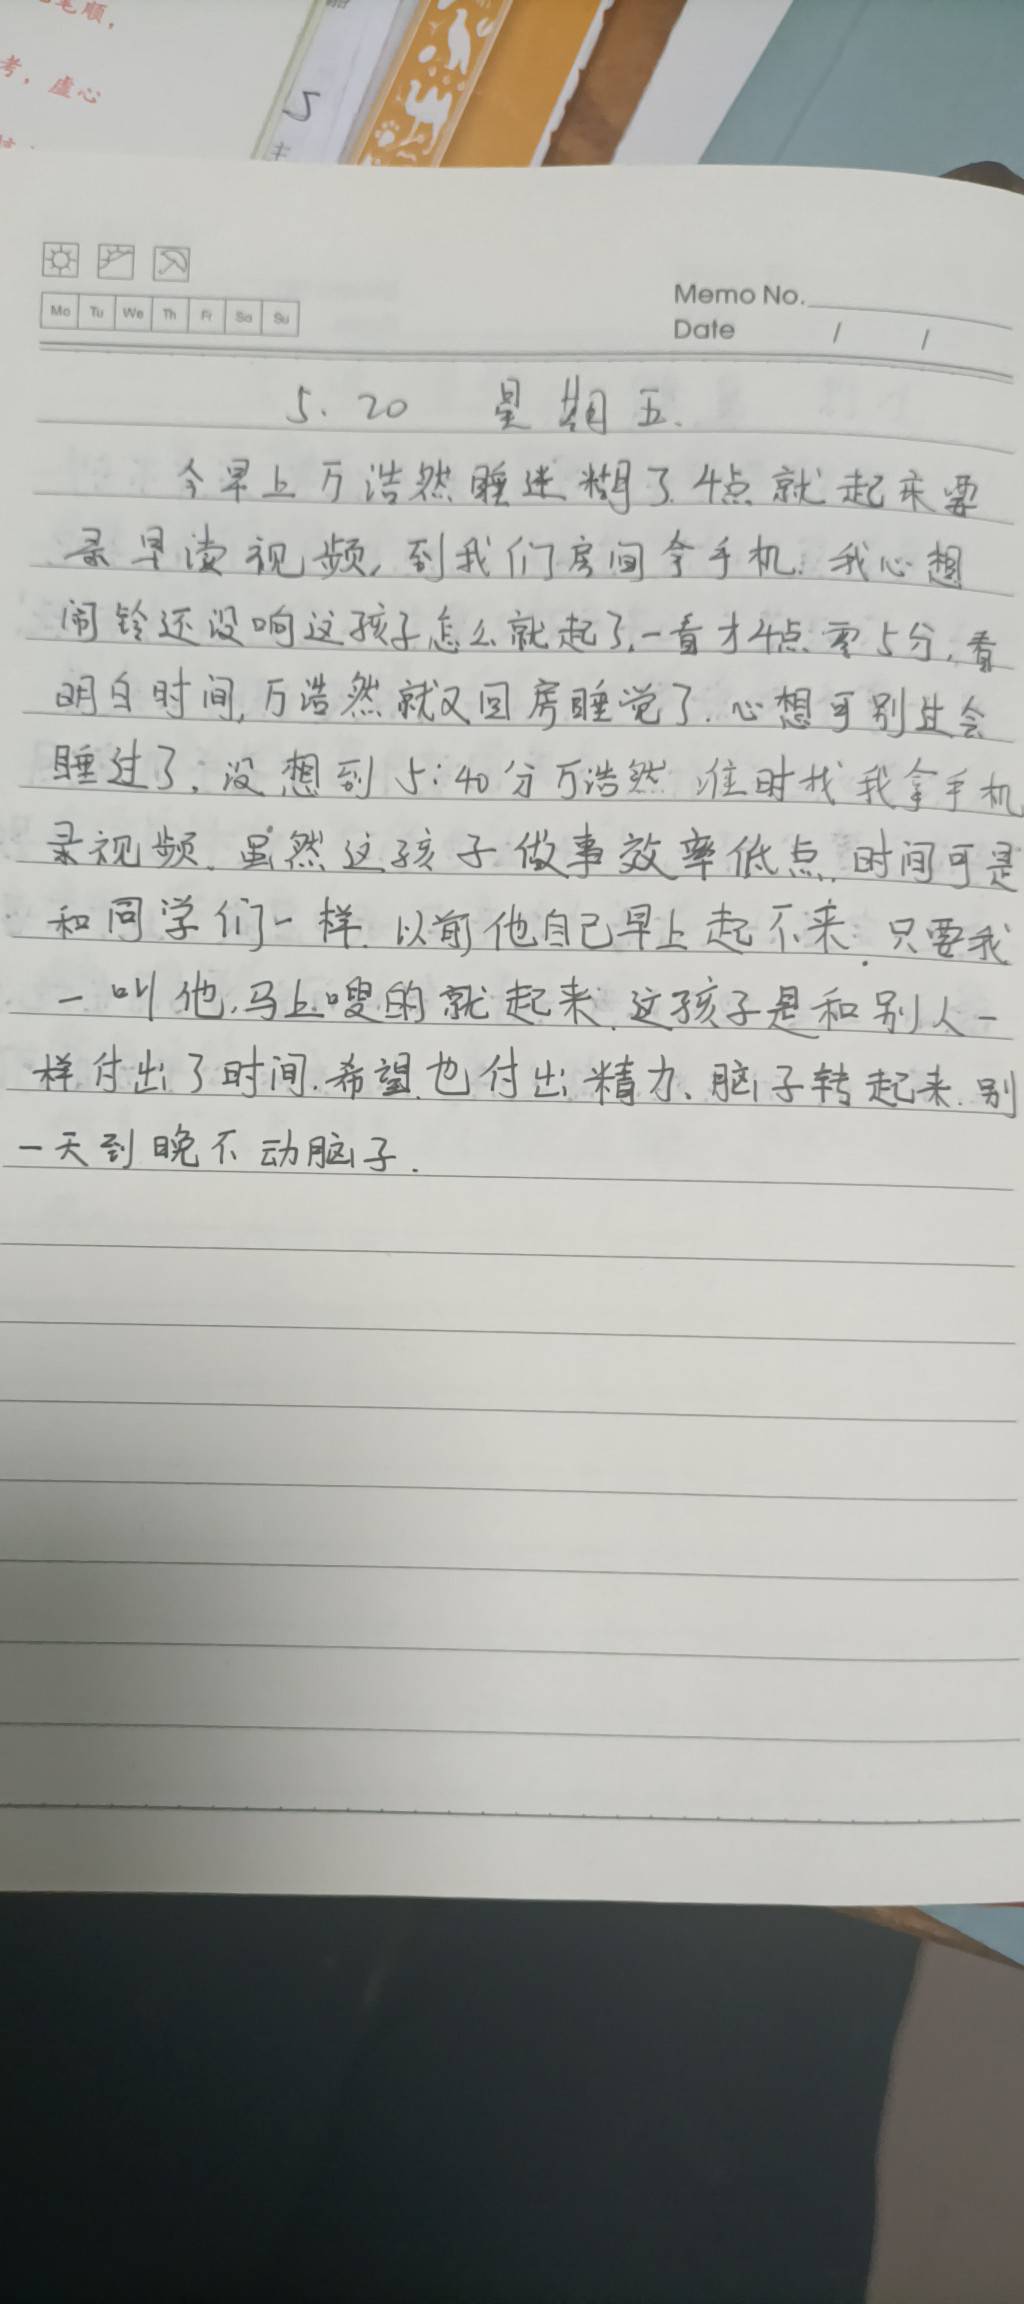 笔顺，
考，虚心
5
主
Mo Tu We Th Fr Sa Su
Memo No.
Date / /
5.20 星期五.
今早上万浩然睡迷糊了.4点就起来要
录早读视频,到我们房间拿手机.我心想
闹铃还没响这孩子怎么就起了,一看才4点零5分,看
明白时间,万浩然就又回房睡觉了.心想可别让会
睡过了,没想到5:40分万浩然准时找我拿手机
录视频.虽然这孩子做事效率低点,时间可是
和同学们一样.以前他自己早上起不来.只要我
一叫他,马上嗖的就起来.这孩子是和别人一
样付出了时间.希望也付出精力、脑子转起来.别
一天到晚不动脑子.